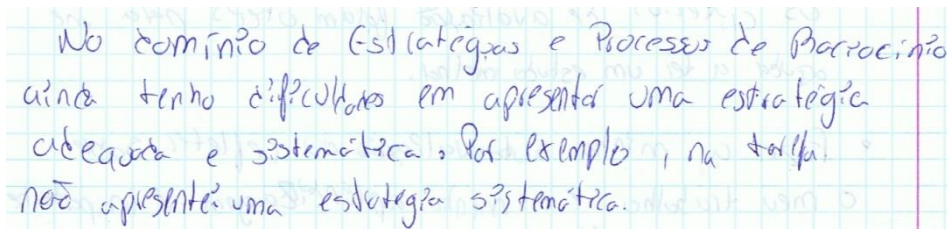 No domínio de Estratégias e Processos de Raciocínio
ainda tenho dificuldades em apresentar uma estratégia
adequada e sistemática. Por exemplo, na tarefa
não apresentei uma estratégia sistemática.